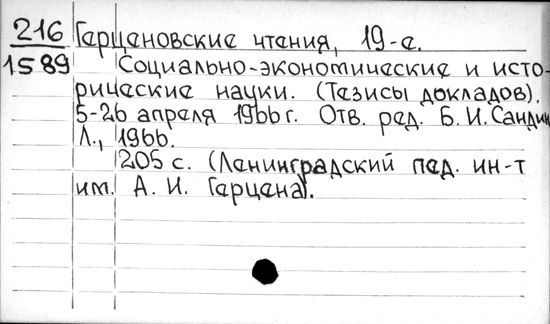 216 Герценовские чтения, 19-е.
1589 Социально-экономические и исто-
рические науки. (Тезисы докладов).
5-26 апреля 1966 г. Отв. ред. Б. И. Сандин
Л., 1966.
205 с. (Ленинградский пед. ин-т
им. А. И. Герцена).